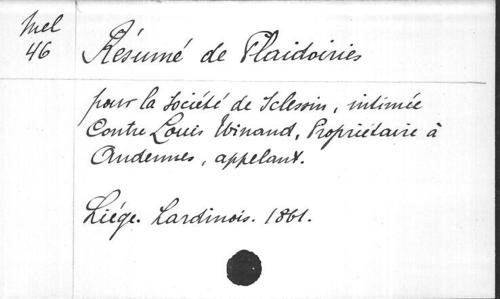 Mel
46
Résumé de Plaidoiries
pour la Société de Sclessin, intimée
Contre Louis Winand, Propriétaire à
Andennes, appelant.
Liége. Lardinois. 1861.